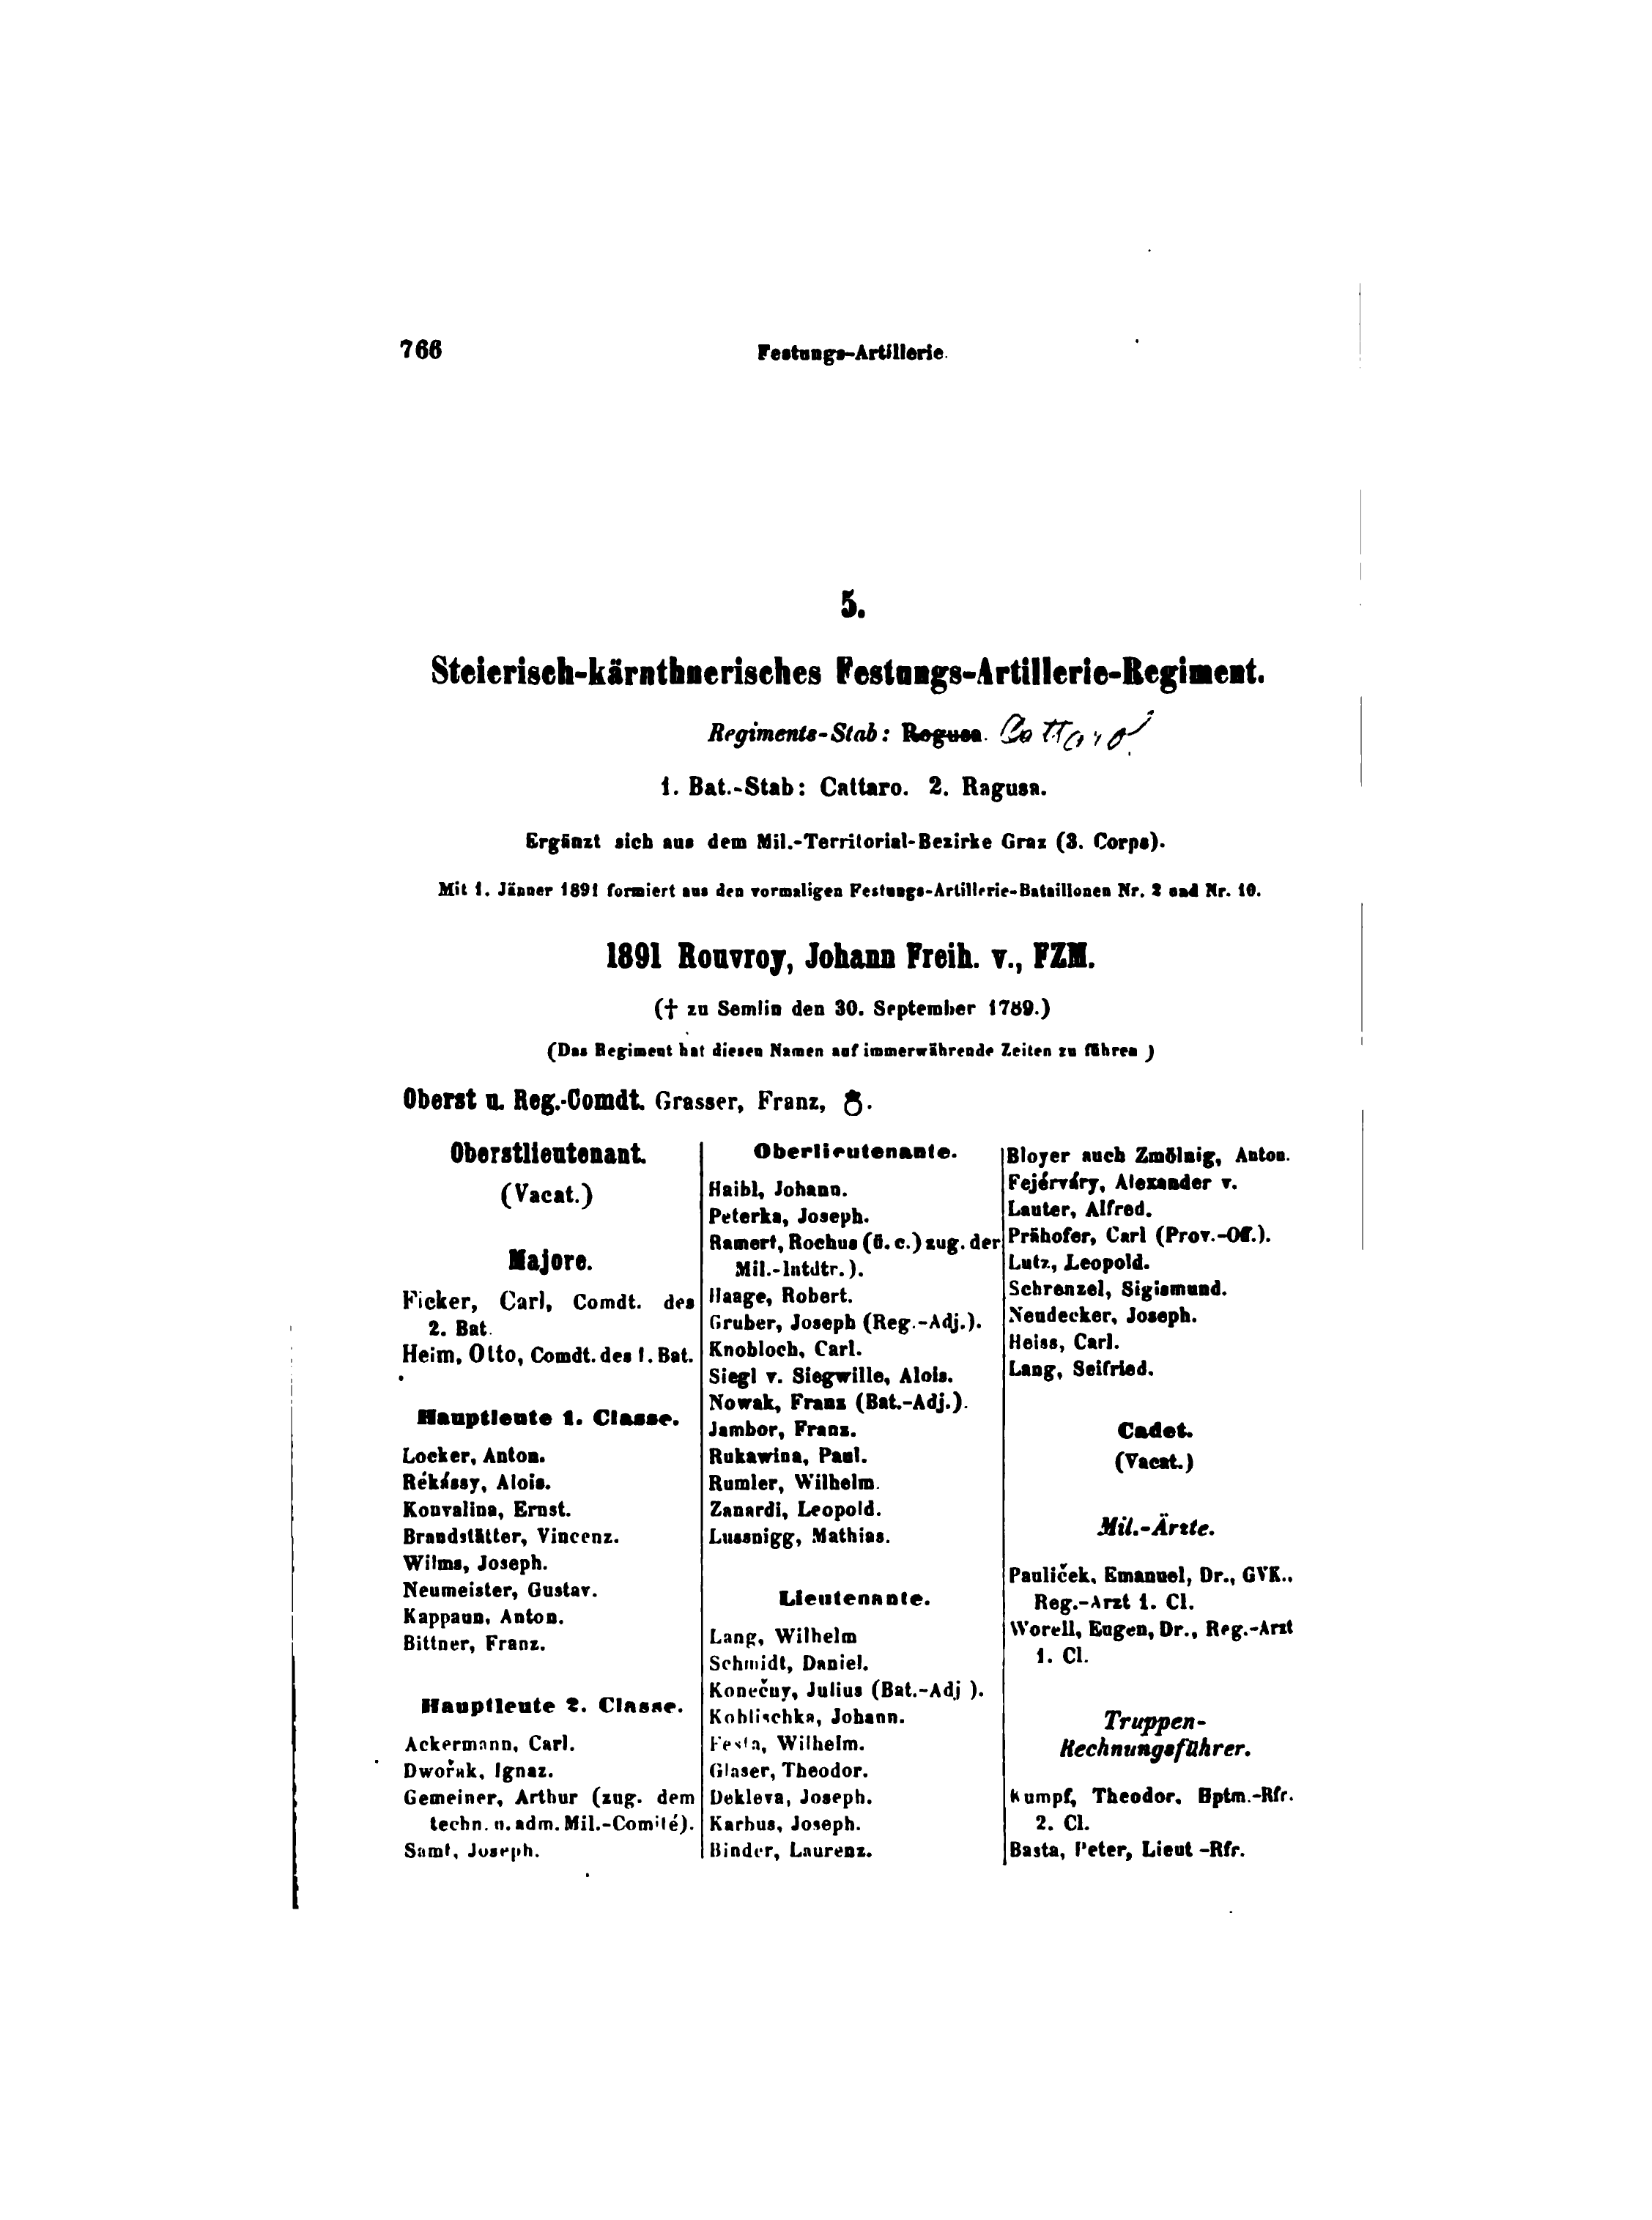 766
Festungs-Artillerie.
5.
Steierisch-kärnthnerisches Festungs-Artillerie-Regiment.
Regiments-Stab: Ragusa. Cattaro
1. Bat.-Stab: Cattaro. 2. Ragusa.
Ergänzt sich aus dem Mil.-Territorial-Bezirke Graz (3. Corps).
Mit 1. Jänner 1891 formiert aus den vormaligen Festungs-Artillerie-Bataillonen Nr. 2 und Nr. 10.
1891 Rouvroy, Johann Freih. v., FZM.
(† zu Semlin den 30. September 1789.)
(Das Regiment hat diesen Namen auf immerwährende Zeiten zu führen )
Oberst u. Reg.-Comdt. Grasser, Franz,
Oberstlieutenant.
(Vacat.)
Majore.
Ficker, Carl, Comdt. des
2. Bat.
Heim, Otto, Comdt. des 1. Bat.
Hauptleute 1. Classe.
Locker, Anton.
Rékássy, Alois.
Konvalina, Ernst.
Brandstätter, Vincenz.
Wilms, Joseph.
Neumeister, Gustav.
Kappaun, Anton.
Bittner, Franz.
Hauptleute 2. Classe.
Ackermann, Carl.
Dwořak, Ignaz.
Gemeiner, Arthur (zug. dem
techn. u. adm. Mil.-Comité).
Samt, Joseph.
Oberlieutenante.
Haibl, Johann.
Peterka, Joseph.
Ramert, Rochus (ü. c.) zug. der
Mil.-Intdtr.).
Haage, Robert.
Gruber, Joseph (Reg.-Adj.).
Knobloch, Carl.
Siegl v. Siegwille, Alois.
Nowak, Franz (Bat.-Adj.).
Jambor, Franz.
Rukawina, Paul.
Rumler, Wilhelm.
Zanardi, Leopold.
Lussnigg, Mathias.
Lieutenante.
Lang, Wilhelm
Schmidt, Daniel.
Konečny, Julius (Bat.-Adj ).
Koblischka, Johann.
Festa, Wilhelm.
Glaser, Theodor.
Dekleva, Joseph.
Karhus, Joseph.
Binder, Laurenz.
Bloyer auch Zmölnig, Anton.
Fejérváry, Alexander v.
Lauter, Alfred.
Prähofer, Carl (Prov.-Off.).
Lutz, Leopold.
Schrenzel, Sigismund.
Neudecker, Joseph.
Heiss, Carl.
Lang, Seifried.
Cadet.
(Vacat.)
Mil.-Ärzte.
Pauliček, Emanuel, Dr., GVK.,
Reg.-Arzt 1. Cl.
Worell, Eugen, Dr., Reg.-Arzt
1. Cl.
Truppen-
Rechnungsführer.
Kumpf, Theodor, Hptm.-Rfr.
2. Cl.
Basta, Peter, Lieut -Rfr.